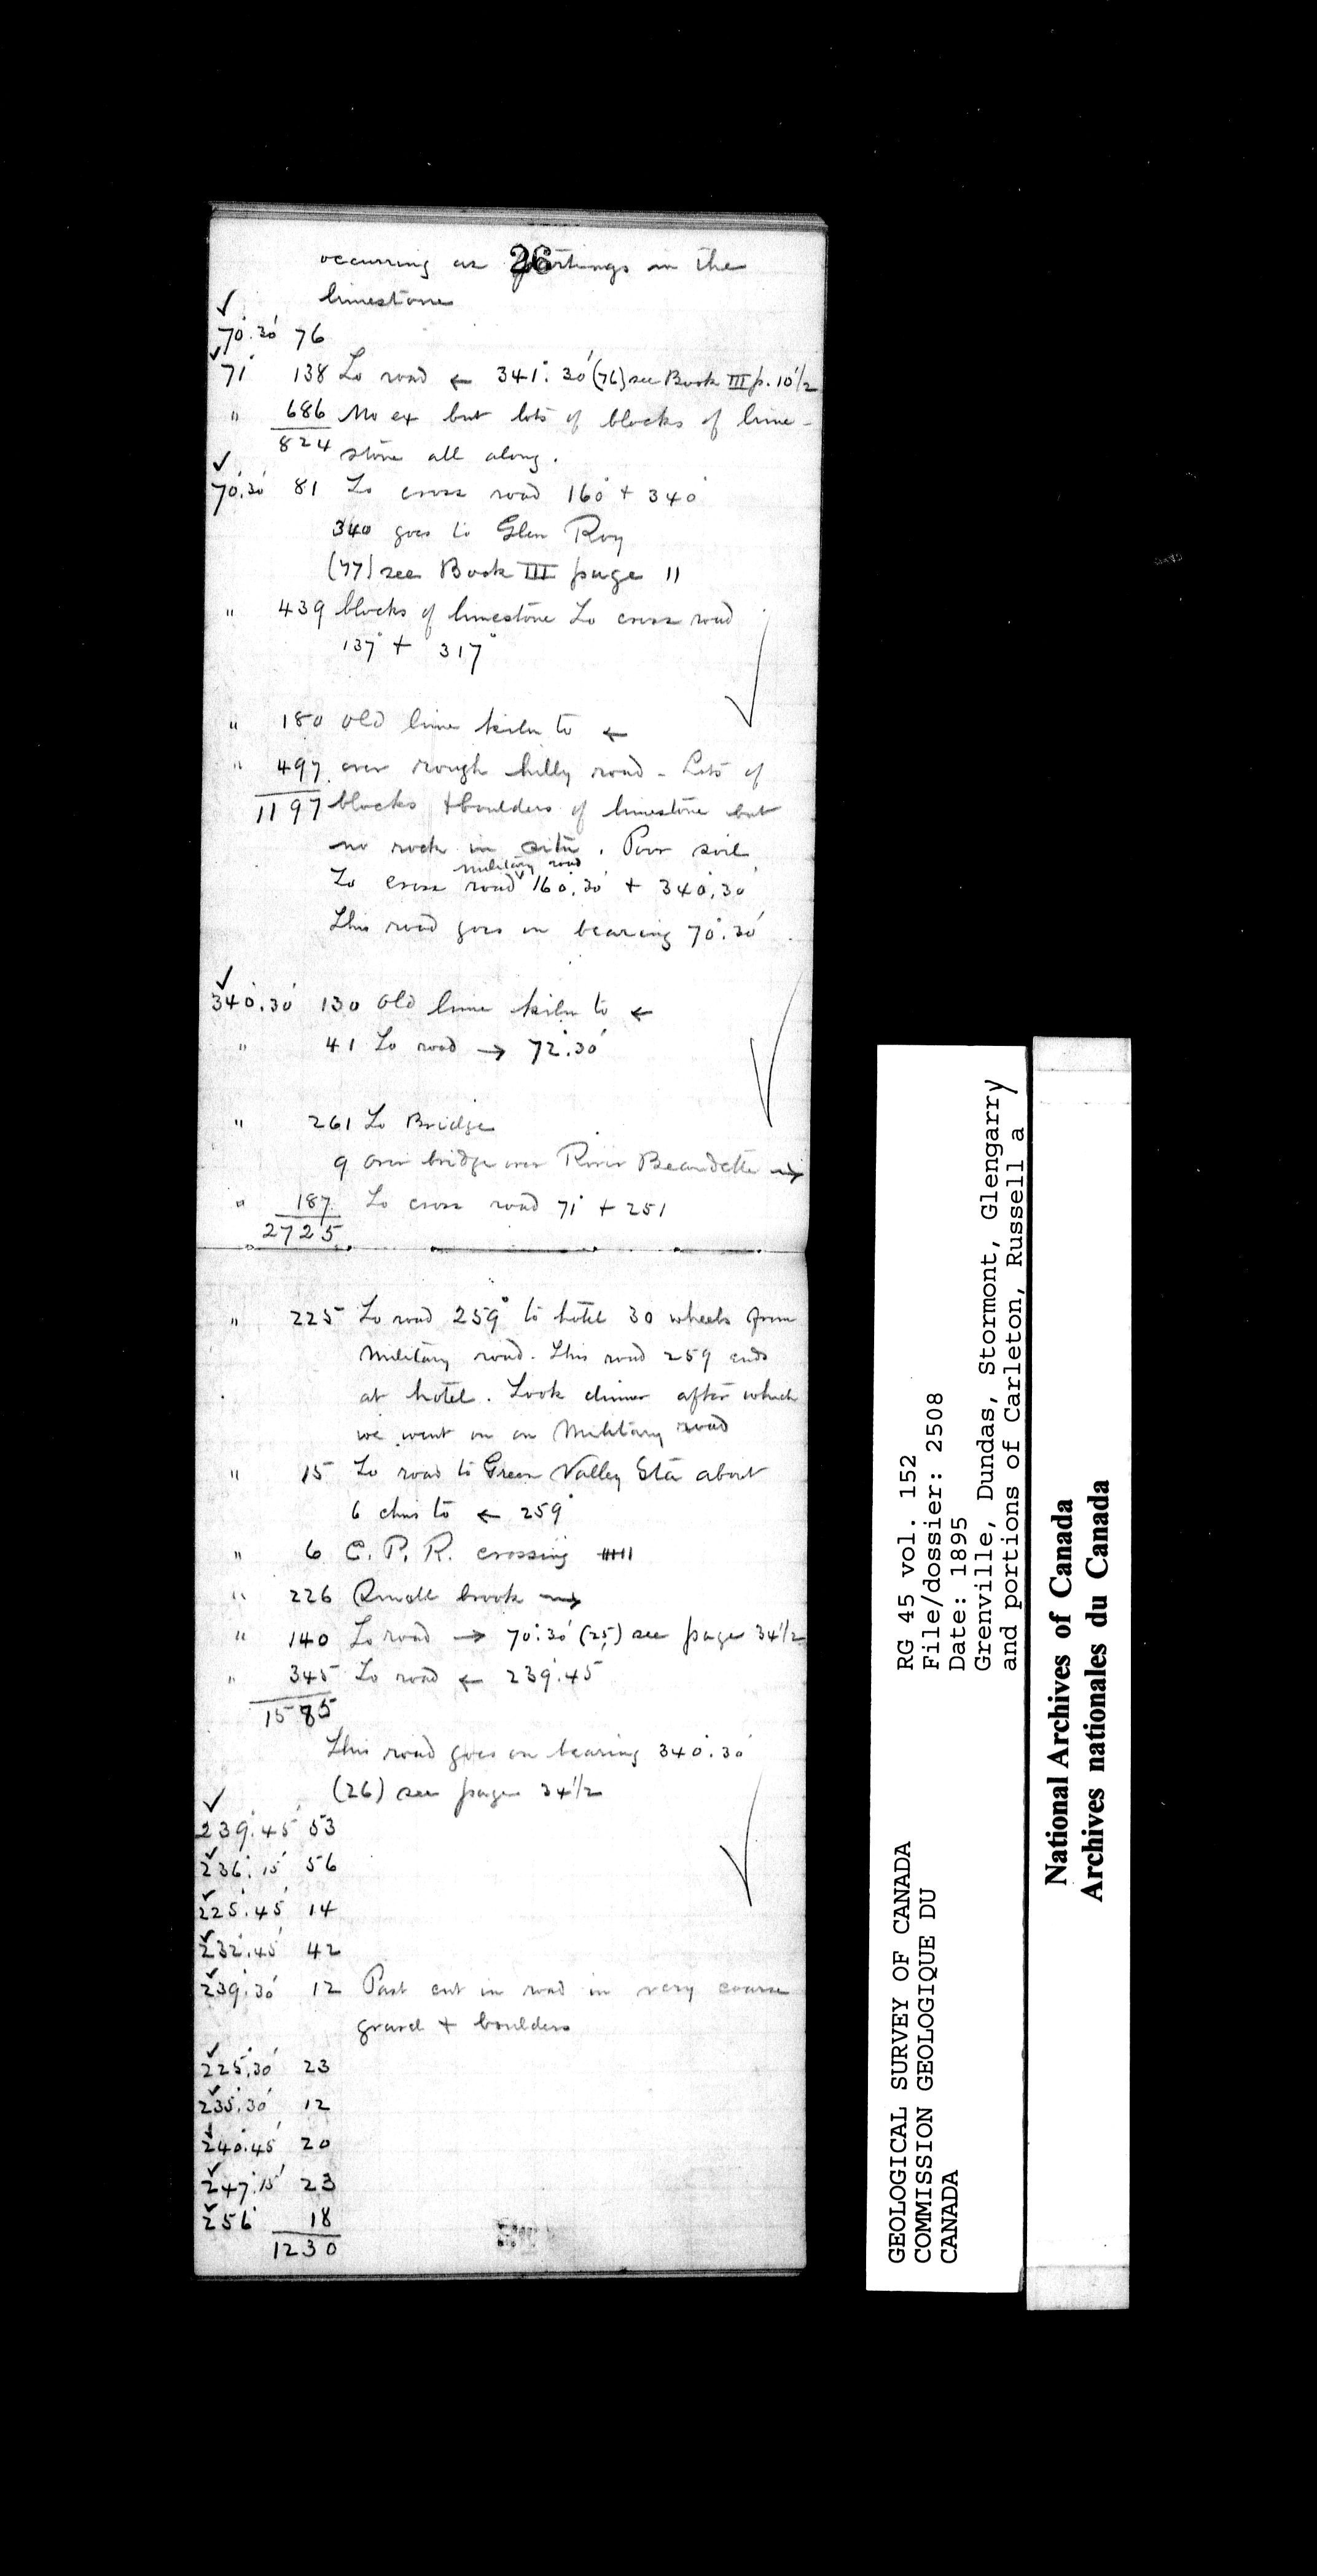 26
occurring as partings in the
limestone
70°.30' 76
71° 138 To road ← 341°.30' (76) see Book III p. 10 1/2
" 686 No ex but lots of blocks of lime-
824 stone all along.
70°.30' 81 To cross road 160° + 340°
340 goes to Glen Roy
(77) see Book III page 11
" 439 blocks of limestone To cross road
137° + 317°
" 180 old lime kiln to ←
" 497 over rough hilly road - Lots of
1197 blocks + boulders of limestone but
no rock in situ. Poor soil
military road
To cross road 160°.30' + 340°.30'
This road goes on bearing 70°.30'
340°.30' 130 old lime kiln to ←
" 41 To road → 72°.30'
" 261 To Bridge
9 over bridge over River Beaudette →
" 187 To cross road 71° + 251
2725
" 225 To road 259° to hotel 30 wheels from
Military road. This road 259 ends
at hotel. Took dinner after which
we went on on Military road
" 15 To road to Green Valley Sta about
6 chns to ← 259°
" 6 C. P. R. crossing
" 226 Small brook →
" 140 To road → 70°.30' (25) see page 34 1/2
" 345 To road ← 239°.45
1585
This road goes on bearing 340°.30'
(26) see page 34 1/2
239°.45' 53
236°.15' 56
225°.45' 14
232°.45' 42
239°.30' 12 Past cut in road in very coarse
gravel + boulders
225°.30' 23
235°.30' 12
240°.45' 20
247°.15' 23
256° 18
1230
GEOLOGICAL SURVEY OF CANADA
COMMISSION GEOLOGIQUE DU
CANADA
RG 45 vol. 152
File/dossier: 2508
Date: 1895
Grenville, Dundas, Stormont, Glengarry
and portions of Carleton, Russell a
National Archives of Canada
Archives nationales du Canada